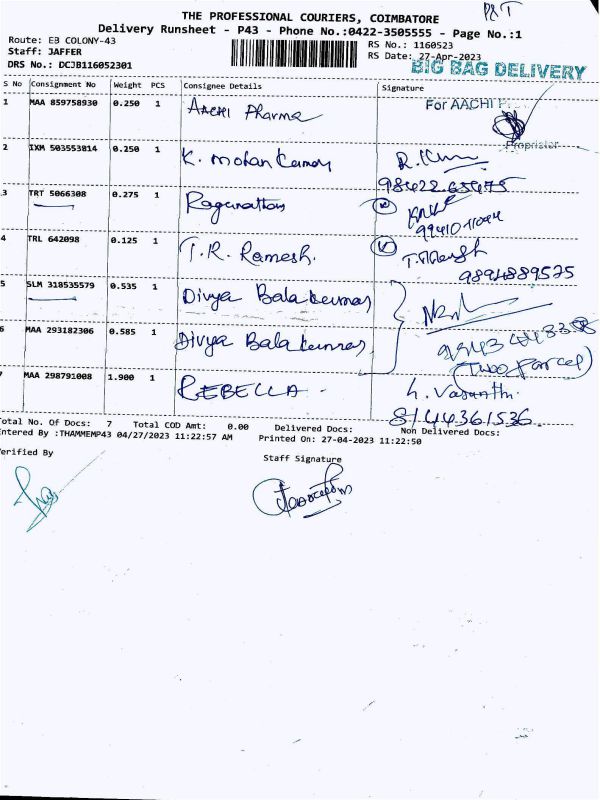 P&T
THE PROFESSIONAL COURIERS, COIMBATORE
Delivery Runsheet - P43 - Phone No.:0422-3505555 - Page No.:1
Route: EB COLONY-43
RS No.: 1160523
Staff: JAFFER
RS Date: 27-Apr-2023
DRS No.: DCJB116052301
BIG BAG DELIVERY
S No Consignment No Weight PCS Consignee Details Signature
1 MAA 859758930 0.250 1 AACHI Pharma For AACHI P
Proprietor
2 IXM 503553814 0.250 1 K. Mohan Kumar R.Kum
98422 65475
3 TRT 5066308 0.275 1 Ragunathan
9941011044
4 TRL 642098 0.125 1 T.R. Ramesh. T.R.Ramesh
9894889575
5 SLM 318535579 0.535 1 Divya Balakumar
6 MAA 293182306 0.585 1 Divya Balakumar
(Two Parcel)
7 MAA 298791008 1.900 1 REBELLA. L. Vasanthi
8144361536
Total No. Of Docs: 7 Total COD Amt: 0.00 Delivered Docs: Non Delivered Docs:
Entered By :THAMMEMP43 04/27/2023 11:22:57 AM Printed On: 27-04-2023 11:22:50
Verified By
Staff Signature